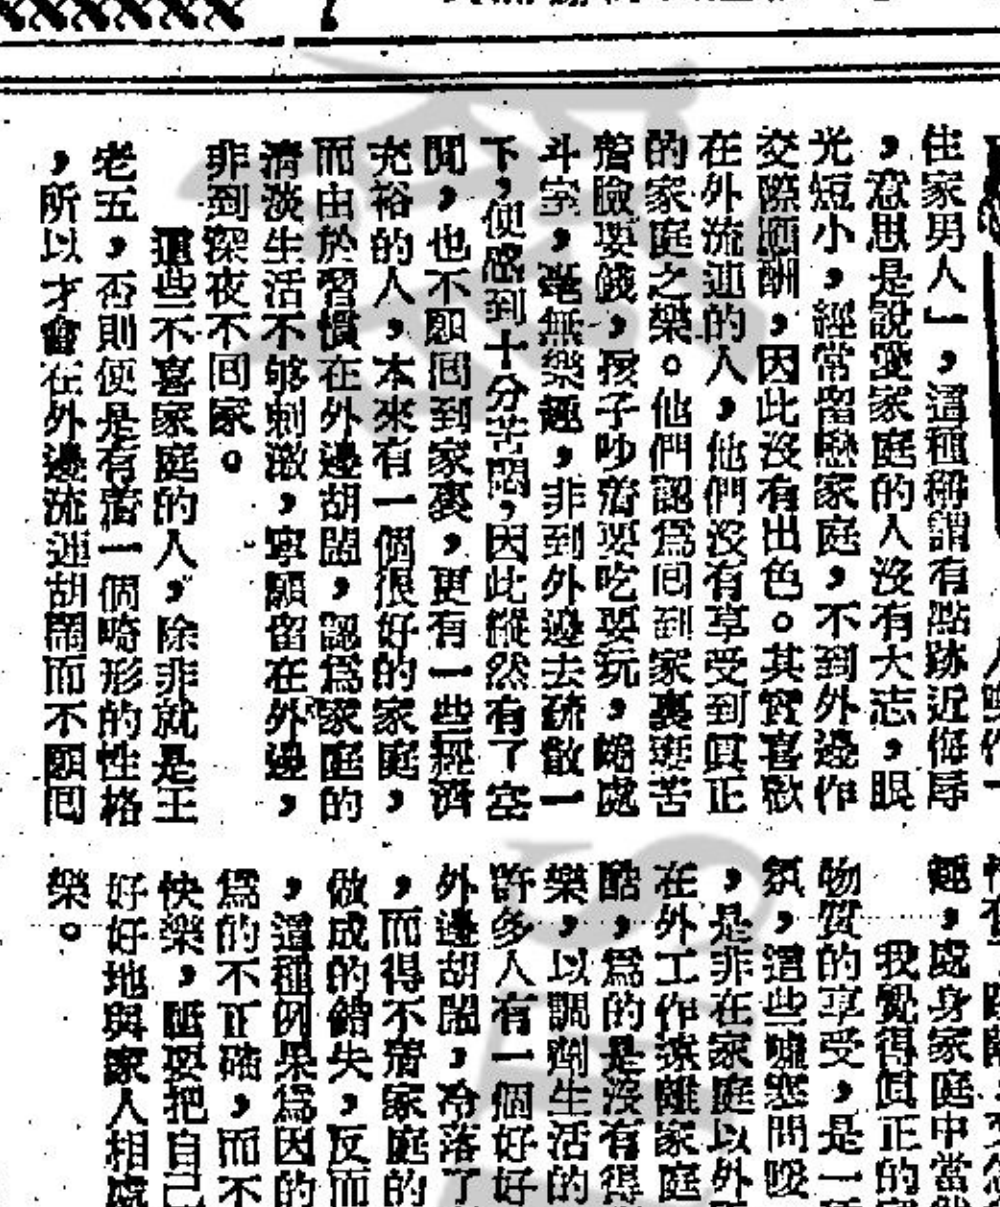 住家男人」,這種稱謂有點跡近侮辱
,意思是說愛家庭的人沒有大志,眼
光短小,經常留戀家庭,不到外邊作
交際應酬,因此沒有出色。其實喜歡
在外流連的人,他們沒有享受到眞正
的家庭之樂。他們認爲回到家裏妻苦
着臉要錢,孩子吵着要吃要玩,踡處
斗室,毫無樂趣,非到外邊去疏散一
下,便感到十分苦悶,因此縱然有了空
閒,也不願回到家裏,更有一些經濟
充裕的人,本來有一個很好的家庭,
而由於習慣在外邊胡鬧,認爲家庭的
清淡生活不够刺激,寧願留在外邊,
非到深夜不回家。
還些不喜家庭的人,除非就是王
老五,否則便是有着一個畸形的性格
,所以才會在外邊流連胡鬧而不願回
趣,處身家庭中當
我覺得眞正的
物質的享受,是一
氛,這些噓寒問暖
,是非在家庭以外
在外工作遠離家庭
酷,爲的是沒有得
樂,以調劑生活的
許多人有一個好好
外邊胡鬧,冷落了
,而得不着家庭的
做成的錯失,反而
,這種例果爲因的
爲的不正確,而不
快樂,祗要把自己
好好地與家人相處
樂。